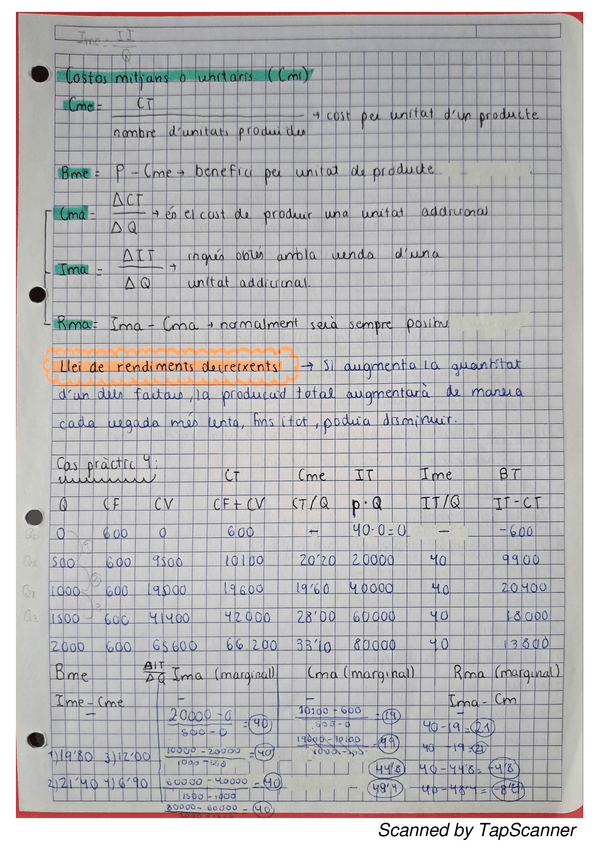 Ime = IT
Q
Costos mitjans o unitaris (Cmi)
Cme = CT / nombre d'unitats produïdes → cost per unitat d'un producte
Bme = P - Cme → benefici per unitat de producte
Cma = ΔCT / ΔQ → és el cost de produir una unitat addicional
Ima = ΔIT / ΔQ → ingrés obtés ambla venda d'una
unitat addicional.
Rma = Ima - Cma → normalment serà sempre positiu
Llei de rendiments decreixents → Si augmenta la quantitat
d'un dels factors, la producció total augmentarà de manera
cada vegada més lenta, fins itot, podria disminuir.
Cas pràctic 4:
CT Cme IT Ime BT
Q CF CV CF + CV CT/Q p·Q IT/Q IT-CT
0 600 0 600 - 40·0=0 - -600
500 600 9500 10100 20'20 20000 40 9900
1000 600 19000 19600 19'60 40000 40 20400
1500 600 41400 42000 28'00 60000 40 18000
2000 600 65600 66200 33'10 80000 40 13800
Bme ΔIT/ΔQ Ima (marginal) Cma (marginal) Rma (marginal)
Ime - Cme - - Ima - Cm
20000 - 0 / 500 - 0 = 40 10100 - 600 / 500 - 0 = 19 40 - 19 = 21
1) 19'80 3) 12'00 = 40 40 - 19 = 21
44'8 40 - 44'8 = -4'8
2) 21'40 4) 6'90 60000 - 40000 / 1500 - 1000 = 40 48'4 40 - 48'4 =
80000 - 60000 = 40
Scanned by TapScanner